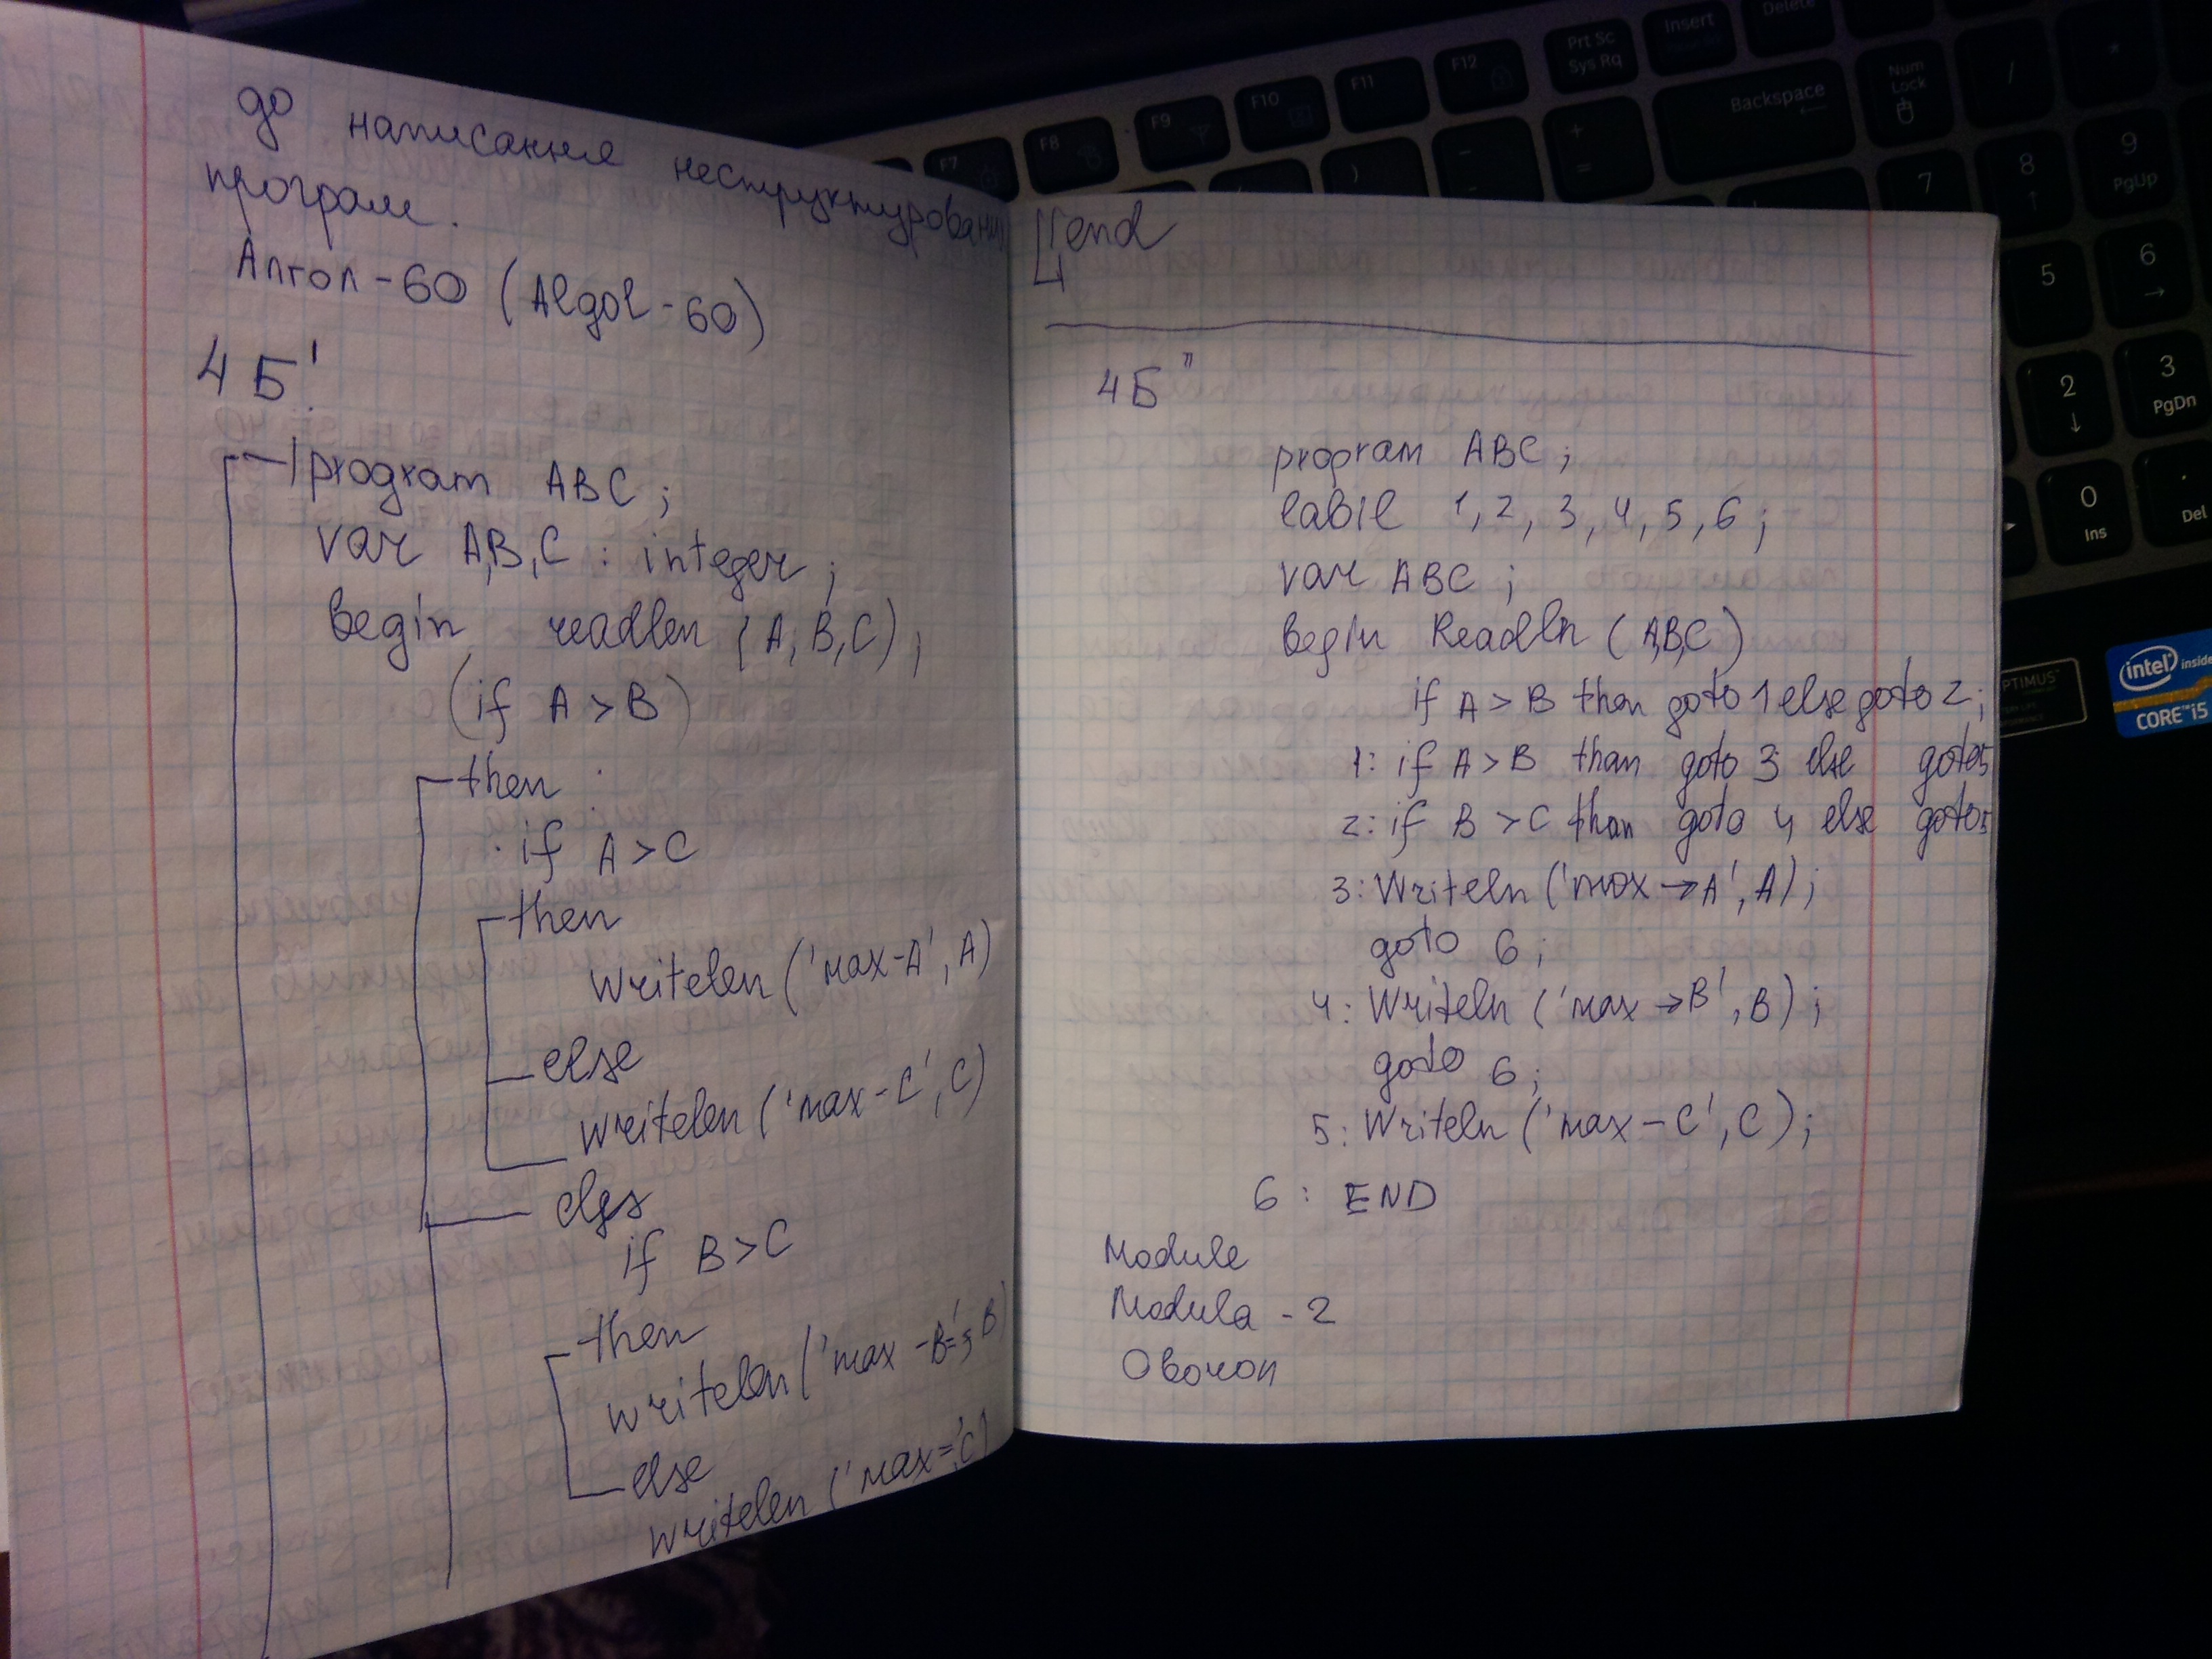 до написання неструктуровани
програм.
Алгол-60 (Algol-60)
4Б'
program ABC;
var A,B,C : integer;
begin readlen (A,B,C);
(if A > B)
then
if A > C
then
writelen ('max-A', A)
else
writelen ('max-C', C)
elgs
if B > C
then
writelen ('max -B=', B)
else
writelen ('max=', C)
end
4Б"
program ABC;
labil 1, 2, 3, 4, 5, 6;
var ABC;
begin Readln (A,B,C)
if A > B then goto 1 else goto 2;
1: if A > B than goto 3 else goto5
2: if B > C than goto 4 else goto5
3: Writeln ('max → A', A);
goto 6;
4: Writeln ('max → B', B);
goto 6;
5: Writeln ('max - C', C);
6: END
Module
Modula - 2
F7
F8
F9
F10
F11
F12
Prt Sc
Sys Rq
Insert
Delete
Backspace
Num
Lock
/
*
7
8
9
PgUp
5
6
2
3
PgDn
0
Ins
.
Del
intel inside
CORE i5